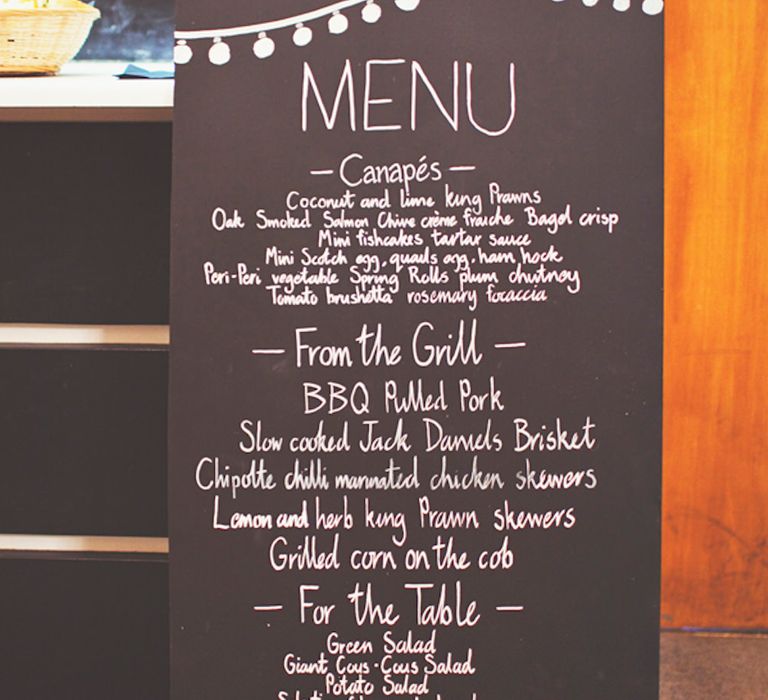 MENU
— Canapés —
Coconut and lime king Prawns
Oak Smoked Salmon Chive crème fraiche Bagel crisp
Mini fishcakes tartar sauce
Mini Scotch egg, quails egg, ham hock
Peri-Peri vegetable Spring Rolls plum chutney
Tomato brushetta rosemary focaccia
— From the Grill —
BBQ Pulled Pork
Slow cooked Jack Daniels Brisket
Chipotte chilli marinated chicken skewers
Lemon and herb king Prawn skewers
Grilled corn on the cob
— For the Table —
Green Salad
Giant Cous-Cous Salad
Potato Salad